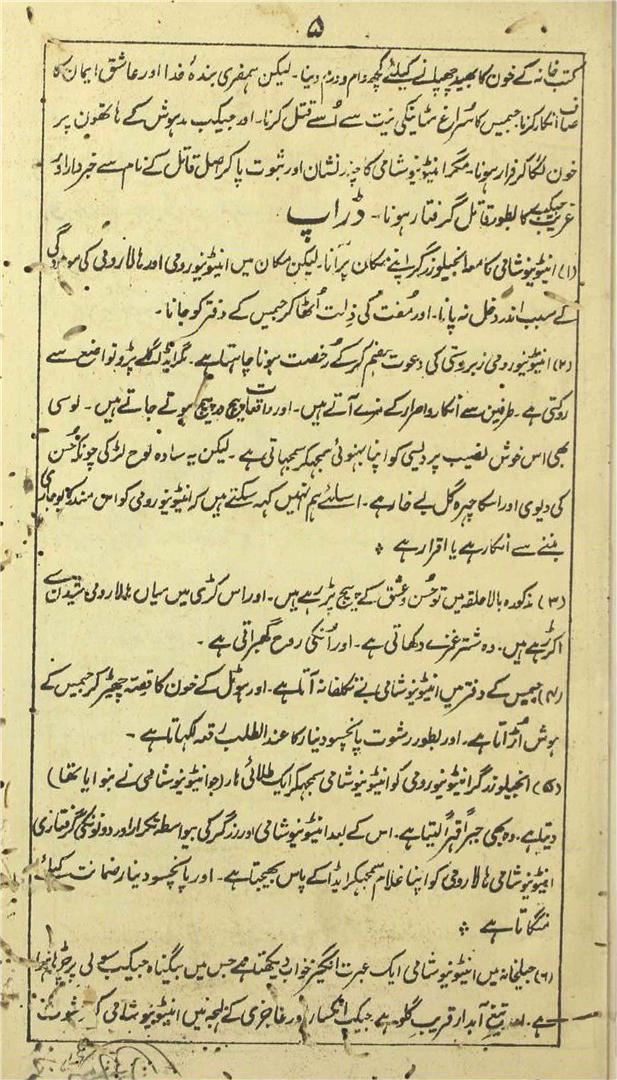 ۵
کتب خانہ کے خون کا بھید چھپانے کیلئے کچھ دام و درم دینا۔ لیکن ہمفری بندۂ خدا اور عاشق ایمان کا
صاف انکار کرنا۔ جیمس کا سُراغ مٹانیکی نیت سے اُسے قتل کرنا۔ اور جیکب مدہوش کے ہاتھوں پر
خون لگا کر فرار ہونا۔ مگر انیٹونیو شامی کا چند نشان اور ثبوت پا کر اصل قاتل کے نام سے خبردار اور
غریب جیکب کا بطور قاتل گرفتار ہونا۔ ڈراپ
(۱) انیٹونیو شامی کا معہ انجیلو زرگر اپنے مکان پر آنا۔ لیکن مکان میں انیٹونیو رومی اور ہالا رومی کی موجودگی
کے سبب اندر دخل نہ پانا۔ اور مُفت کی ذِلت اُٹھا کر جیمس کے دفتر کو جانا۔
(۲) انیٹونیو رومی زبردستی کی دعوت ہضم کر کے رُخصت ہونا چاہتا ہے۔ مگر ایڈا گلے پڑ و تواضع سے
روکتی ہے۔ طرفین سے انکار و اصرار کے مزے آتے ہیں۔ اور واقعات پیچ در پیچ ہوتے جاتے ہیں۔ لوسی
بھی اس خوش نصیب پردیسی کو اپنا بہنوئی سمجھکر سمجہاتی ہے۔ لیکن یہ سادہ لوح لڑکی چونکہ حُسن
کی دیوی اور اسکا چہرہ گل بے خار ہے۔ اسلئے ہم نہیں کہہ سکتے ہیں کہ انیٹونیو رومی کو اس مندر کا پوجاری
بننے سے انکار ہے یا اقرار ہے ٭
(۳) مذکورہ بالا حلقہ میں تو حُسن و عشق کے پیچ پڑ رہے ہیں۔ اور اس کڑی میں میاں ہالا رومی شیدن سے
اکڑ رہے ہیں۔ وہ شتر غمزے دکھاتی ہے۔ اور اُنکی روح گھبراتی ہے۔
(۴) جیمس کے دفتر میں انیٹونیو شامی بے تکلفانہ آتا ہے۔ اور ہوٹل کے خون کا قصہ چھیڑ کر جیمس کے
ہوش اُڑاتا ہے۔ اور بطور رشوت پانچسو دینار کا عند الطلب رُقعہ لکہاتا ہے۔
(۵) انجیلو زرگر انیٹونیو رومی کو انیٹونیو شامی سمجہکر ایک طلائی ہار (جو انیٹونیو شامی نے بنوایا تھا)
دیتا ہے۔ وہ بھی جبراً قہراً لیتا ہے۔ اس کے بعد انیٹونیو شامی اور زرگر کی ہیواسطہ تکرار اور دونونکی گرفتاری
انیٹونیو شامی ہالا رومی کو اپنا غلام سمجہکر ایڈا کے پاس بھیجتا ہے۔ اور پانچسو دینار ضمانت کیلئے
منگاتا ہے ٭
(۶) جیلخانہ میں انیٹونیو شامی ایک عبرت انگیز خواب دیکھتا ہے جس میں بیگناہ جیکب سولی پر چڑہا ہوا
ہے۔ اور تیغِ آبدار قریبِ گلو ہے جیکب انکسار اور عاجزی کے لہجہ میں انیٹونیو شامی کو رشوت